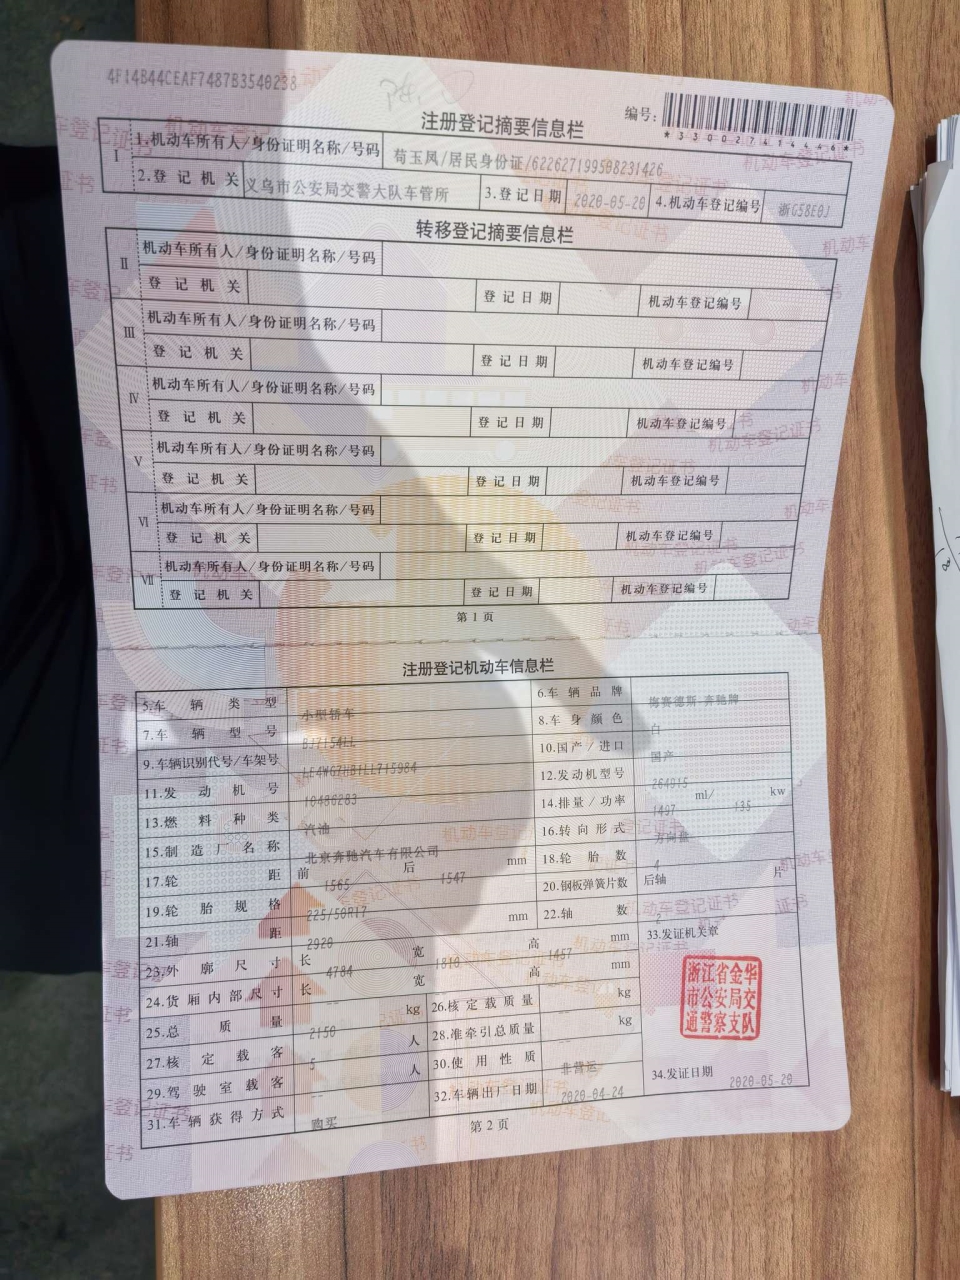 4F14B44CEAF7487B3540238
注册登记摘要信息栏
编号:
*330027414446*
I 1.机动车所有人/身份证明名称/号码 苟玉凤/居民身份证/622627199508231426
2.登记机关 义乌市公安局交警大队车管所 3.登记日期 2020-05-20 4.机动车登记编号 浙G58E0J
转移登记摘要信息栏
II 机动车所有人/身份证明名称/号码
登记机关 登记日期 机动车登记编号
III 机动车所有人/身份证明名称/号码
登记机关 登记日期 机动车登记编号
IV 机动车所有人/身份证明名称/号码
登记机关 登记日期 机动车登记编号
V 机动车所有人/身份证明名称/号码
登记机关 登记日期 机动车登记编号
VI 机动车所有人/身份证明名称/号码
登记机关 登记日期 机动车登记编号
VII 机动车所有人/身份证明名称/号码
登记机关 登记日期 机动车登记编号
第1页
注册登记机动车信息栏
5.车辆类型 小型轿车 6.车辆品牌 梅赛德斯-奔驰牌
7.车辆型号 BJ7154LL 8.车身颜色 白
9.车辆识别代号/车架号 LE4WG7HB1LL715984 10.国产/进口 国产
11.发动机号 10486283 12.发动机型号 264915
13.燃料种类 汽油 14.排量/功率 1497 ml/ 135 kw
15.制造厂名称 北京奔驰汽车有限公司 16.转向形式 方向盘
17.轮距 前 1565 后 1547 mm 18.轮胎数 4
19.轮胎规格 225/50R17 20.钢板弹簧片数 后轴 片
21.轴距 2920 mm 22.轴数 2
23.外廓尺寸 长 4784 宽 1810 高 1457 mm 33.发证机关章
24.货厢内部尺寸 长 -- 宽 高 mm
浙江省金华
市公安局交
通警察支队
25.总质量 2150 kg 26.核定载质量 -- kg
27.核定载客 5 人 28.准牵引总质量 -- kg
29.驾驶室载客 -- 人 30.使用性质 非营运
31.车辆获得方式 购买 32.车辆出厂日期 2020-04-24 34.发证日期 2020-05-20
第2页